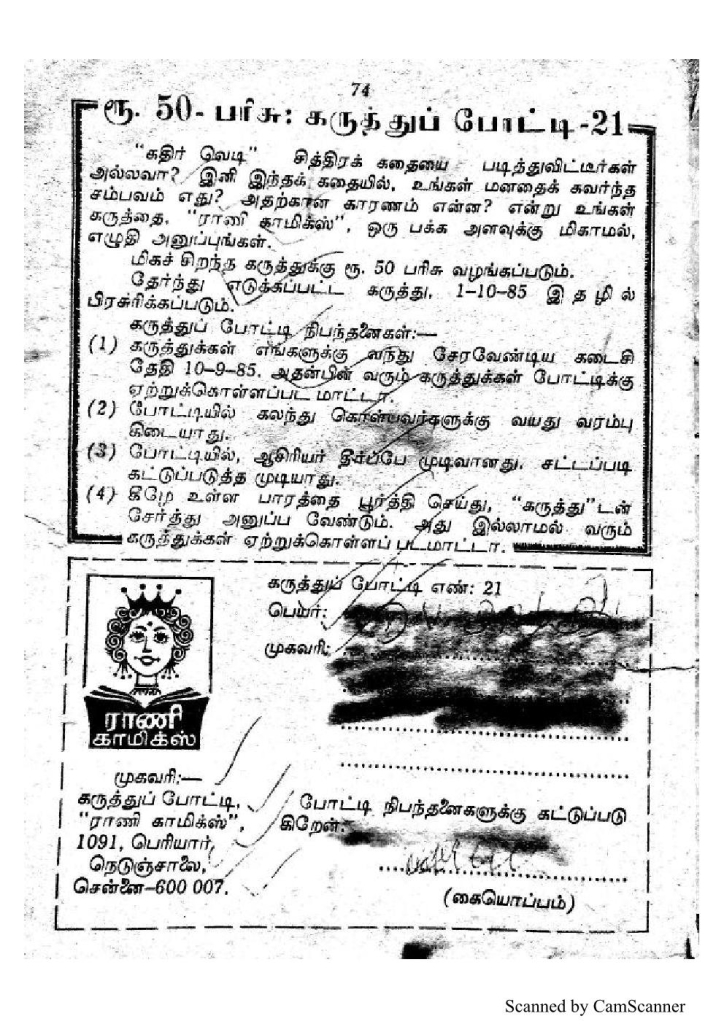 74
ரூ. 50- பரிசு: கருத்துப் போட்டி-21
"கதிர் வெடி" சித்திரக் கதையை படித்துவிட்டீர்கள்
அல்லவா? இனி இந்தக் கதையில், உங்கள் மனதைக் கவர்ந்த
சம்பவம் எது? அதற்கான காரணம் என்ன? என்று உங்கள்
கருத்தை, "ராணி காமிக்ஸ்", ஒரு பக்க அளவுக்கு மிகாமல்,
எழுதி அனுப்புங்கள்.
மிகச் சிறந்த கருத்துக்கு ரூ. 50 பரிசு வழங்கப்படும்.
தேர்ந்து எடுக்கப்பட்ட கருத்து, 1-10-85 இதழில்
பிரசுரிக்கப்படும்.
கருத்துப் போட்டி நிபந்தனைகள்:—
(1) கருத்துக்கள் எங்களுக்கு வந்து சேரவேண்டிய கடைசி
தேதி 10-9-85. அதன்பின் வரும் கருத்துக்கள் போட்டிக்கு
ஏற்றுக்கொள்ளப்பட மாட்டா.
(2) போட்டியில் கலந்து கொள்பவர்களுக்கு வயது வரம்பு
கிடையாது.
(3) போட்டியில், ஆசிரியர் தீர்ப்பே முடிவானது. சட்டப்படி
கட்டுப்படுத்த முடியாது.
(4) கீழே உள்ள பாரத்தை பூர்த்தி செய்து, "கருத்து"டன்
சேர்த்து அனுப்ப வேண்டும். அது இல்லாமல் வரும்
கருத்துக்கள் ஏற்றுக்கொள்ளப் படமாட்டா.
கருத்துப் போட்டி எண்: 21
பெயர்:
முகவரி:
ராணி
காமிக்ஸ்
முகவரி:—
கருத்துப் போட்டி,
"ராணி காமிக்ஸ்",
1091, பெரியார்,
நெடுஞ்சாலை,
சென்னை–600 007.
போட்டி நிபந்தனைகளுக்கு கட்டுப்படு
கிறேன்.
(கையொப்பம்)
Scanned by CamScanner